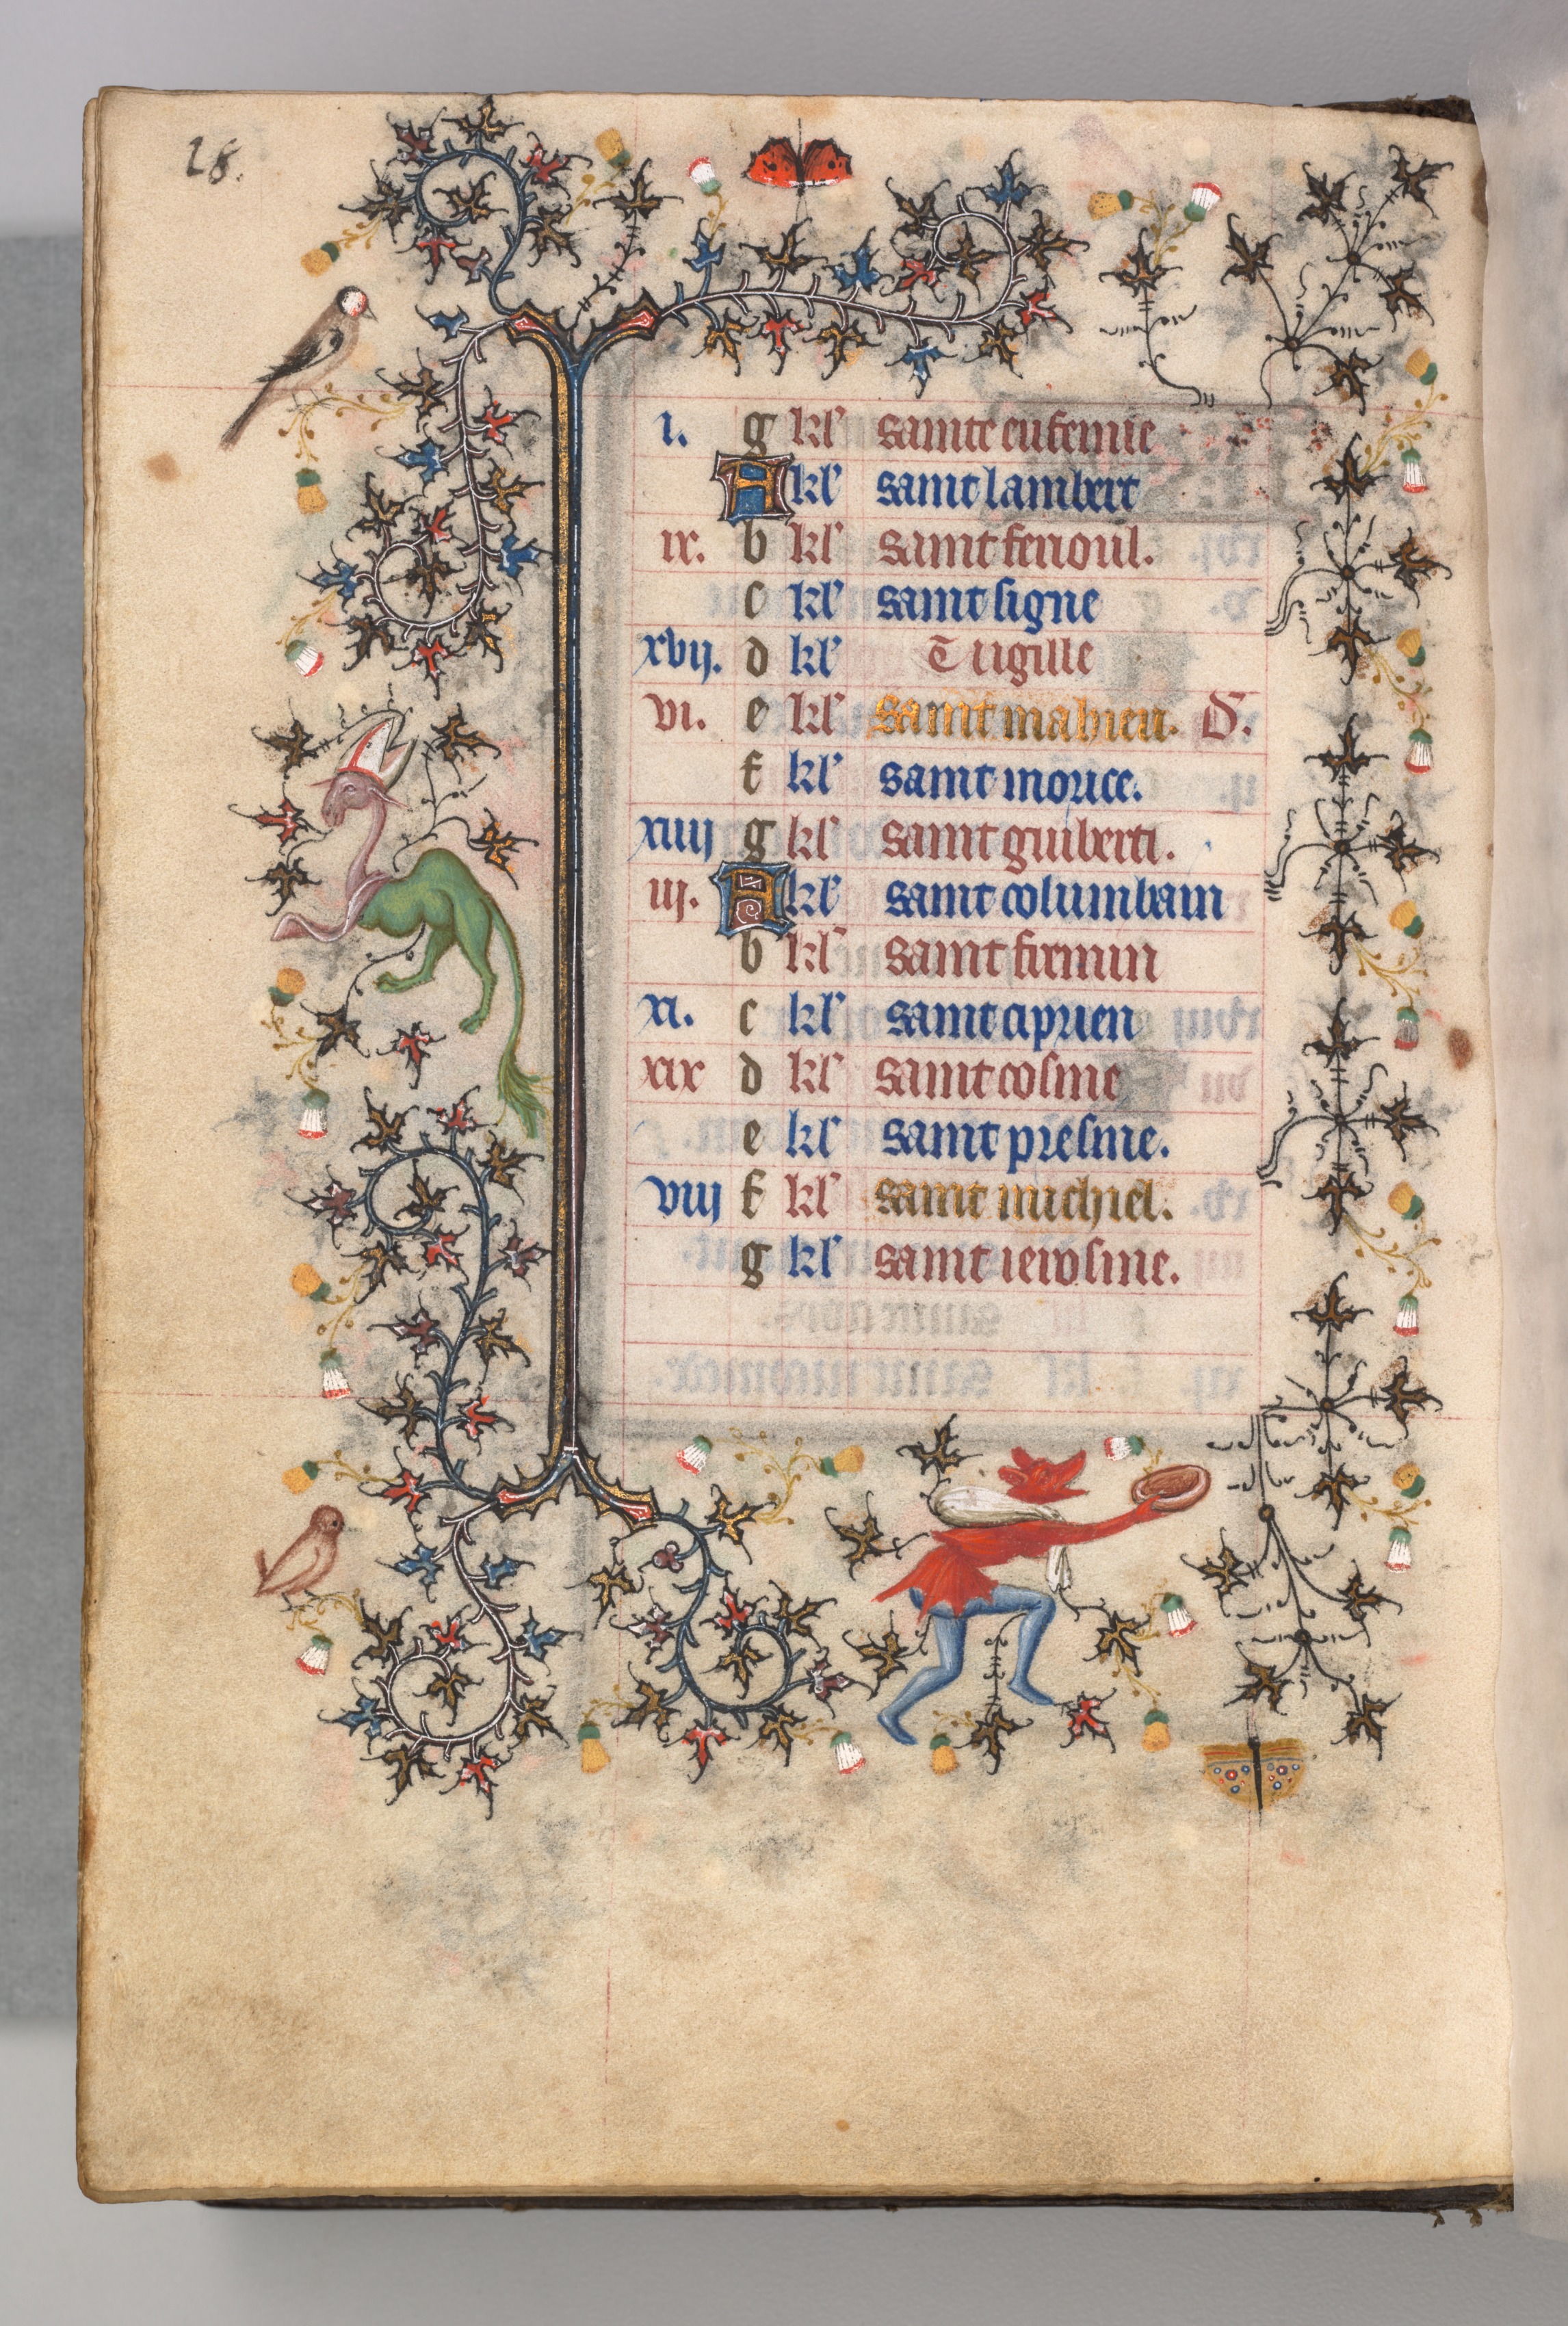 28.
i. g kl' sainte eufemie
A kl' saint lambert
ix. b kl' saint fenoul.
c kl' saint signe
xvij. d kl' T vigille
vi. e kl' saint mahieu. D.
f kl' saint morice.
xiiij g kl' saint guibert.
iij. A kl' saint columbain
b kl' saint firmin
xi. c kl' saint ciprien
xix d kl' saint cosme
e kl' saint presme.
viij f kl' saint michiel.
g kl' saint ierosme.